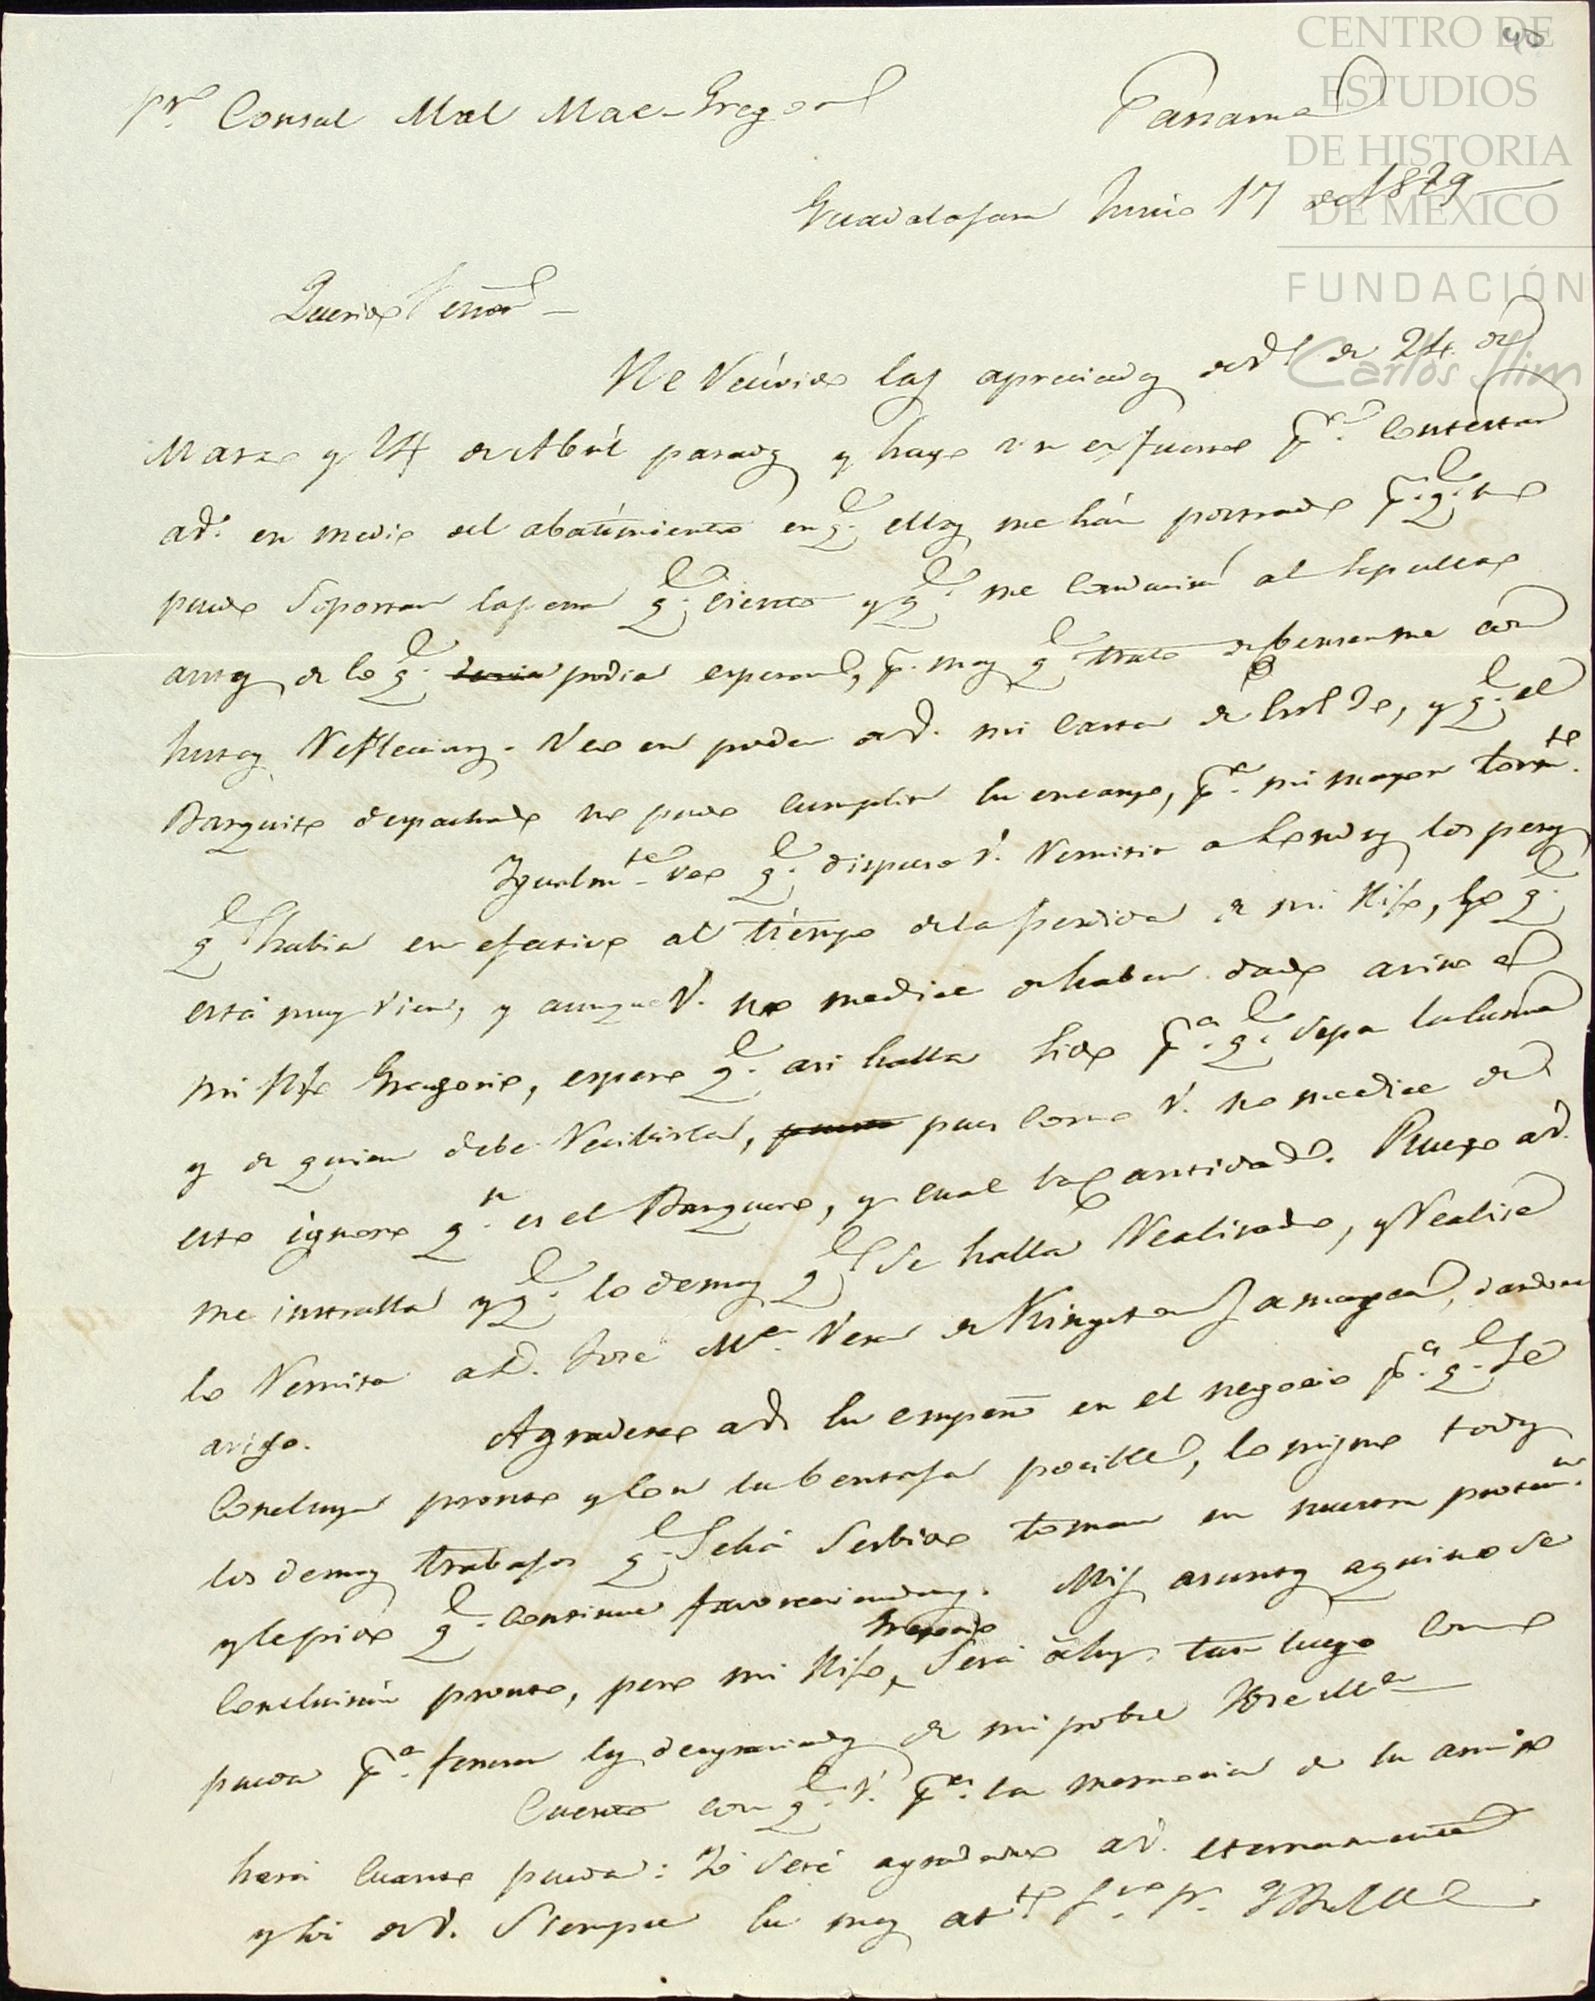 40
CENTRO DE
ESTUDIOS
DE HISTORIA
DE MÉXICO
FUNDACIÓN
Carlos Slim
Sr. Consul Mal Mac-Gregor Panama
Guadalajara Junio 17 de 1829
Querido Señor
He recivido las apreciadas de V. de 24 de
Marzo y 14 de Abril pasados y hago un esfuerzo pa. contestar
a V. en medio del abatimiento en q. ellas me hán postrado pr. q. no
puedo soportar la pena q. ciento y q. me conducirá al sepulcro
antes de lo q. podia esperar, pr. mas q. trato de benserme con
justas reflecciones. Veo en poder de V. mi carta de y q. el
Barquito despachado no pudo cumplir su encargo, pa. mi mayor tormto.
Igualmte. veo q. dispuso V. remitir a Londres los pesos
q. habia en efectivo al tiempo de la perdida de mi Hijo, lo q.
está muy vien, y aunque V. no me dice de haber dado aviso a
mi Hijo Gregorio, espero q. asi halla sido pa. q. sepa la suma
y de quien debe recibirla, pues como V. no me dice de
esto ignoro qn. es el Banquero, y cual la cantidad. Ruego a V.
me instrulla y q. lo demas q. se halla realisado, y realise
lo remita a D. José Ma. Vera de Kingston Jamayca, dandome
aviso. Agradesco a V. su empeño en el negocio pa. q. se
concluya pronto y con la bentaja pocible, lo mismo todos
los demas trabajos q. se há serbido tomar en nuestra protecon.
y le pido q. continue favoreciendonos. Mis asuntos aqui no se
concluirán pronto, pero mi Hijo Gregorio, será tan luego como
pueda pa. los desgraciados de mi pobre Jose Ma.
Cuento con q. V. pr. la memoria de su amigo
hará cuanto pueda: Yó seré agradecido a V. eternamente
y soi de V. siempre su mas atto. So. Sr.